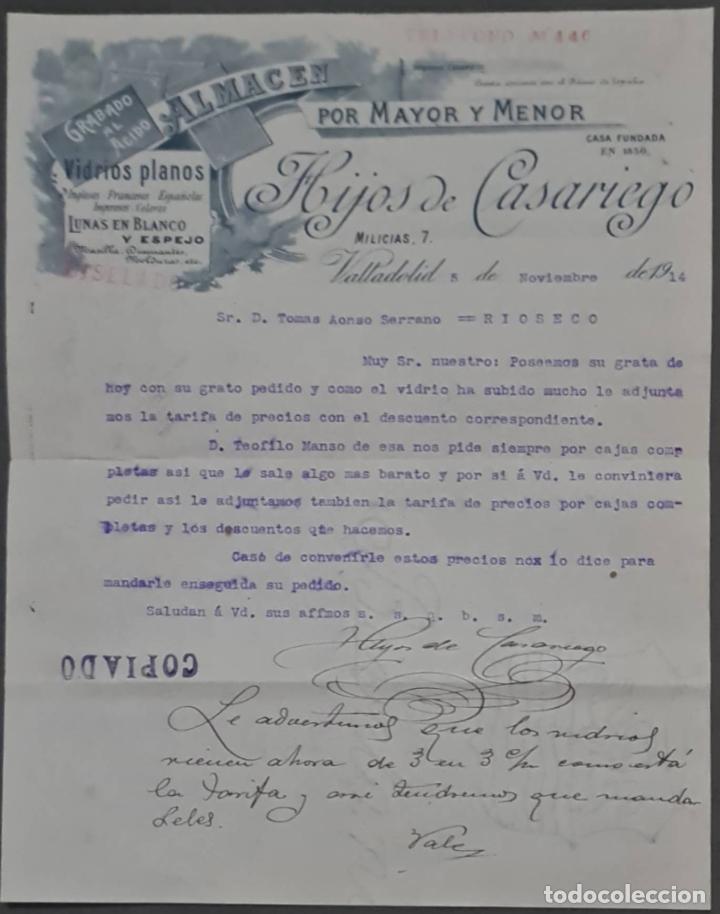 TELEFONO Nº 446
GRABADO
AL
ACIDO
ALMACEN
POR MAYOR Y MENOR
CASA FUNDADA
EN 1850.
Vidrios planos
Ingleses Franceses Españoles
Impresos Colores
LUNAS EN BLANCO
Y ESPEJO
Masilla, Diamantes,
Molduras, etc.
BISELADO
Hijos de Casariego
MILICIAS, 7.
Valladolid 5 de Noviembre de 1914
Sr. D. Tomas Aonso Serrano == RIOSECO
Muy Sr. nuestro: Poseemos su grata de
hoy con su grato pedido y como el vidrio ha subido mucho le adjunta
mos la tarifa de precios con el descuento correspondiente.
D. Teofilo Manso de esa nos pide siempre por cajas comp
pletas asi que le sale algo mas barato y por si á Vd. le conviniera
pedir asi le adjuntamos tambien la tarifa de precios por cajas com-
pletas y los descuentos que hacemos.
Caso de convenirle estos precios nox lo dice para
mandarle enseguida su pedido.
Saludan á Vd. sus affmos s. s. q. b. s. m.
Hijos de Casariego
COPIADO
Le advertimos que los vidrios
vienen ahora de 3 en 3 c/m como está
la tarifa y asi tendremos que mandar
seles.
Vale
todocoleccion